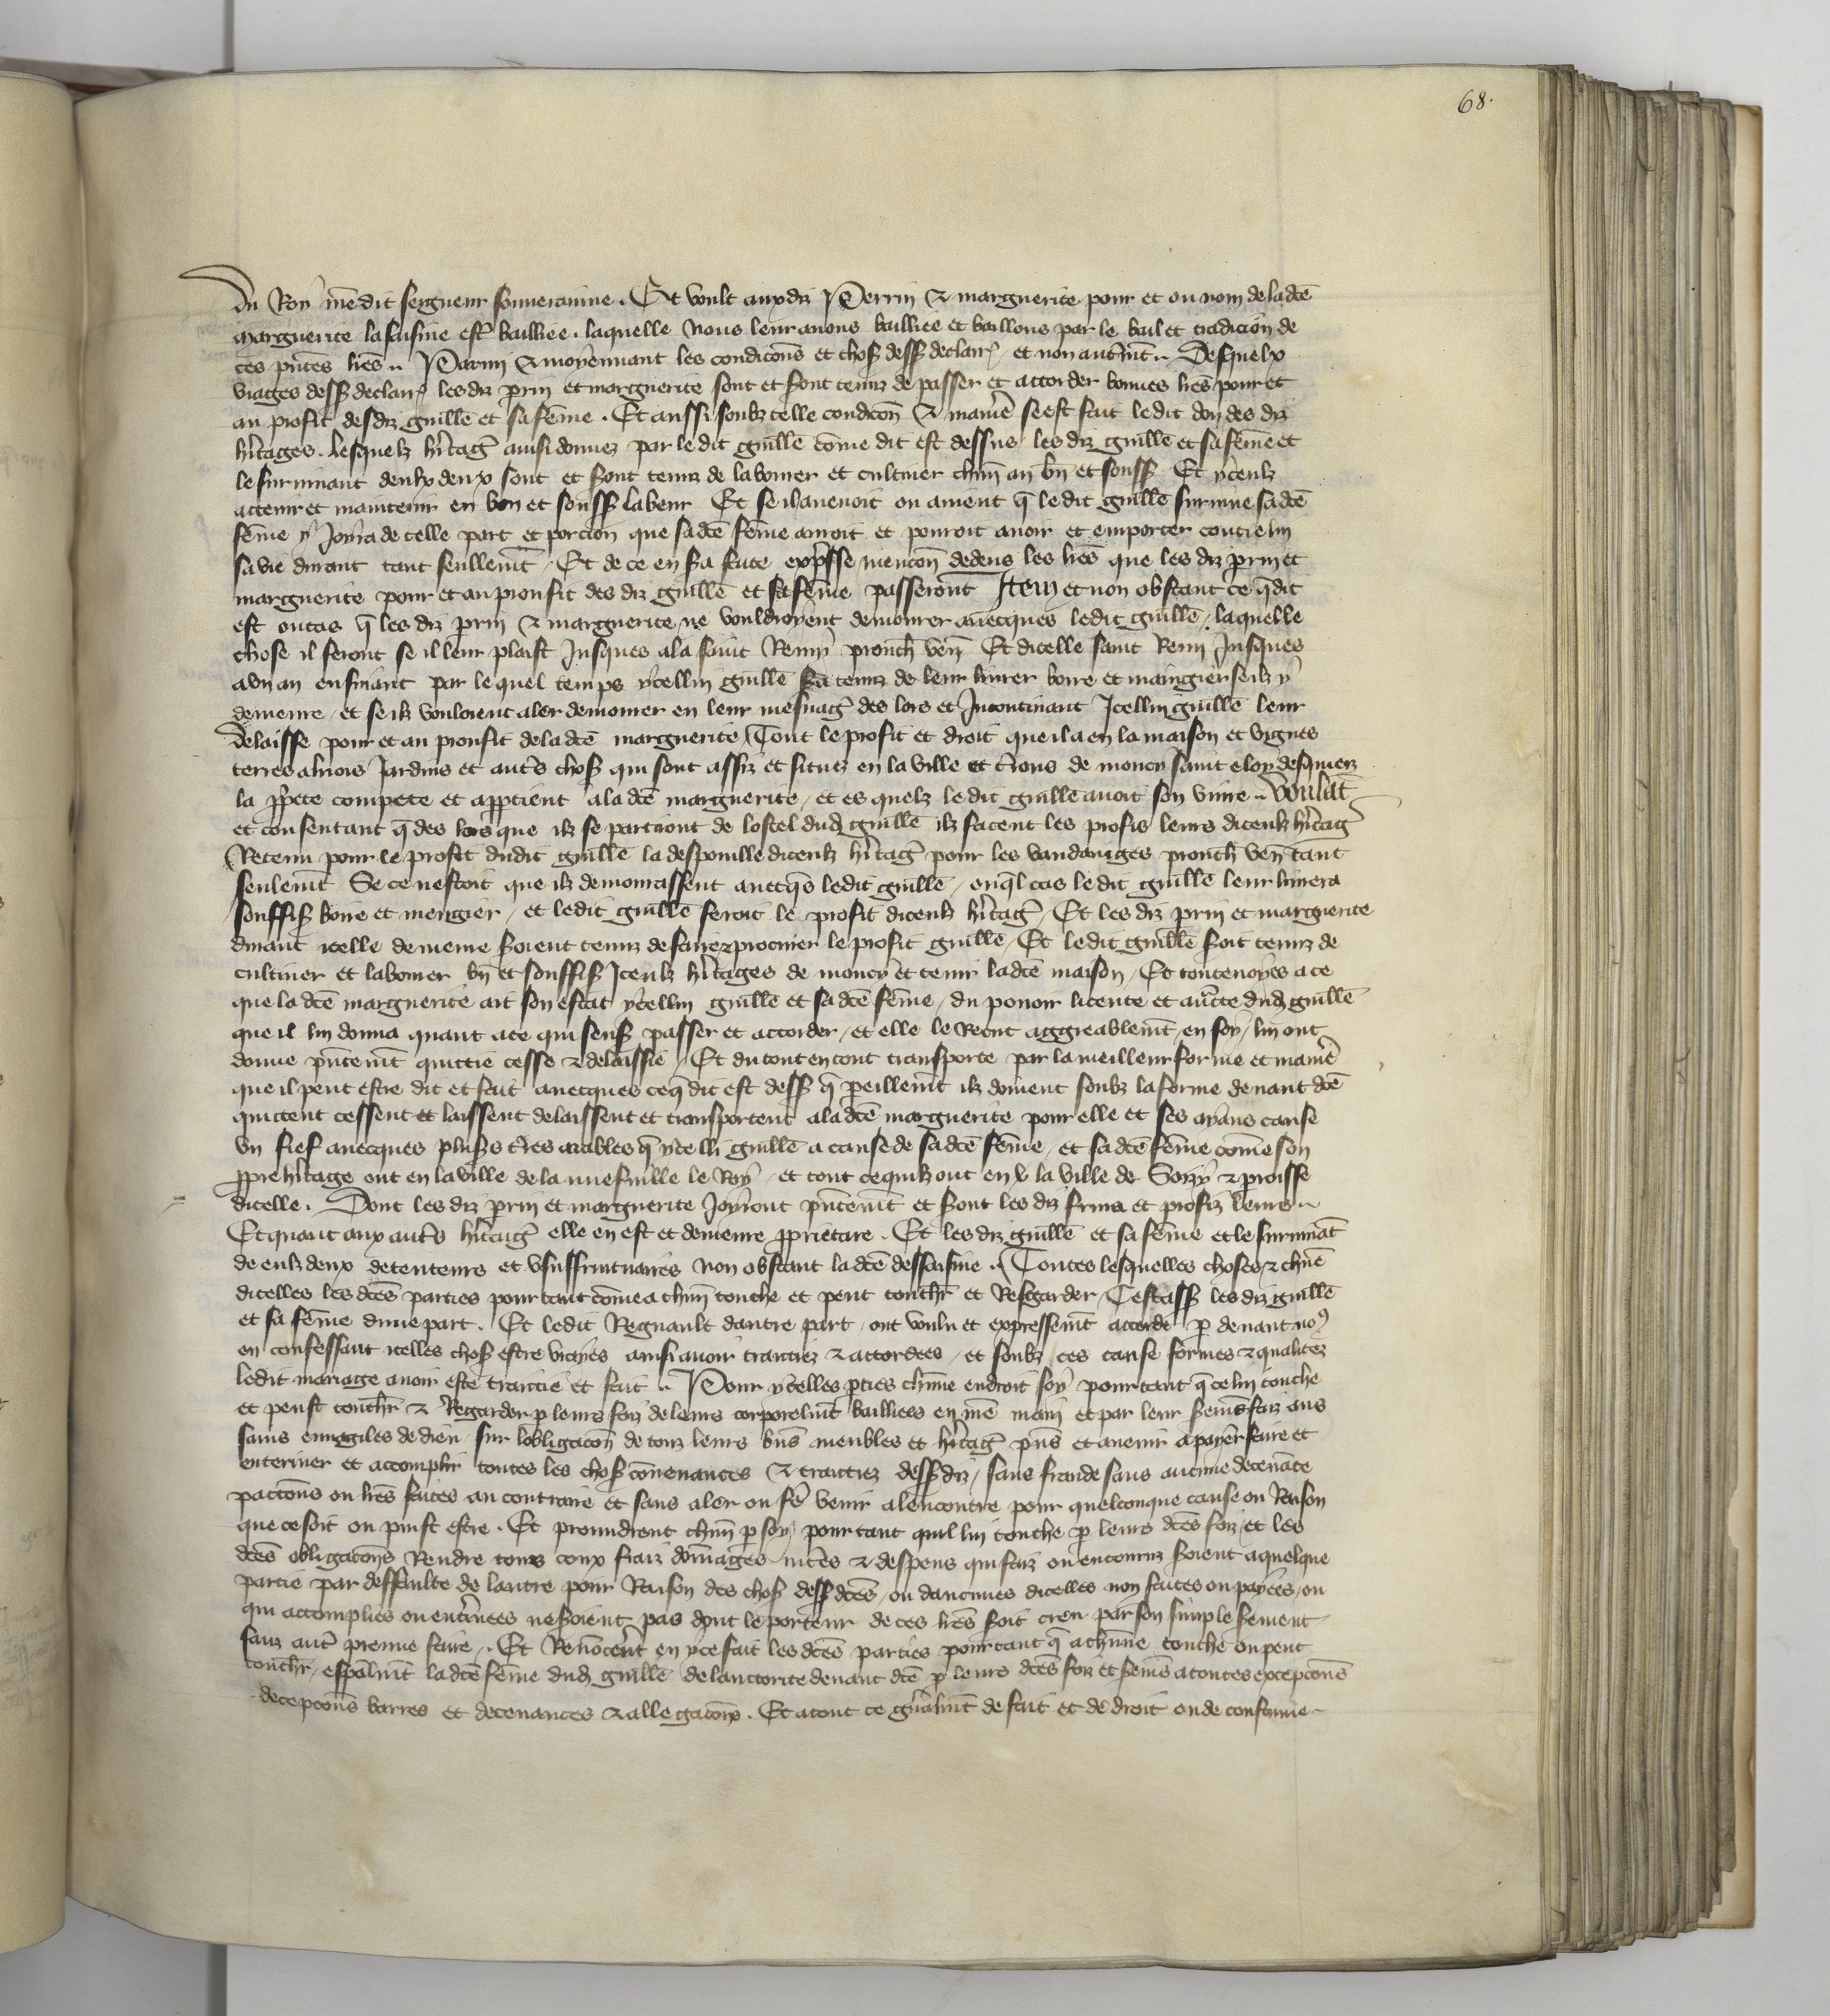 68.
Du Roy nrē dit seigneur souverainne. Et voult auxdiz Perrin & marguerite pour et ou nom de la dcē
marguerite la saisine estre bailliee. laquelle Nous leur avons bailliee et baillons par le bail et tradicion de
ces pn̄tes lrēs.. Parmi & moyennant les condicōns et chos̄ dess̄ declair̄ / et non autremt̄.. Desquelx
viages dess̄ declair̄ les diz prin et marguerite sont et sont tenuz de passer et accorder bonnes lrēs pour et
au profit desdiz guillē et sa fēme. Et aussi soubz telle condicōn & maniē se est fait le dit don des diz
hr̄itages. lesquelz hr̄itaḡ ainsi donnez par le dit guillē cōme dit est dessus les diz guillē et sa fēme et
le survivant deulx deux sont et sont tenuz de labourer et cultiver chūn an bn̄ et souff̄ Et yceulx
a tenir et maintenir en bon et souff̄ labeur Et se il avenoit ou avient q̄ ledit guillē survive sa dcē
fēme y Joyra de telle part et porcion que sa dcē fēme auroit et pouroit avoir et emporter contre lui
sa vie durant tant seullemt̄. Et de ce en sa faite exp̄sse mencōn dedens les lrēs que les diz prin et
marguerite pour et au prouffit des diz guillē et sa fēme passeront Item et non obstant ce q̄ dit
est ou cas q̄ les diz prin & marguerite ne vouldroyent demourer avecques ledit guillē / laquelle
chose il feront se il leur plaist Jusques a la saint Remy prouch̄ ven̄ Et dicelle saint Remi Jusques
a un an ensuiant par lequel temps ycellui guillē sa tenuz de leur livrer boire et maingier se ilz y
demeure / et se ilz vouloient aler demourer en leur mesnaḡ des lors et Incontinant Icellui guillē leur
delaisse pour et au prouffit de la dcē marguerite Tout le profit et droit que il a en la maison et vignes
terres aluois Jardins et aut̄s chos̄ qui sont assiz et situez en la ville et t̄rrous de moncy saint eloy desquiex
la pp̄ete compete et appt̄ient a la dcē marguerite / et es quelz le dit guillē avoit son vivre.. Voulāt
et consentant q̄ des lors que ilz se partiront de lostel dud guillē ilz facent les profis leurs diceulx hr̄itaḡ
Retenu pour le profit dudit guillē la despouille diceulx hr̄itaḡ pour les vandanges prouch̄ ven̄ tant
seulemt̄ Se ce nestoit que ilz demourassent avecqs̄ ledit guillē / ouq̄l cas le dit guillē leur livrera
souffis̄ boire et mengier / et ledit guillē feroit le profit diceulx hr̄itaḡ / Et les diz prin et marguerite
durant icelle demeure soient tenuz de faire & procurer le profit guillē / Et le dit guillē soit tenuz de
cultiver et labourer bn̄ et souffis̄ Iceulx hr̄itages de moncy et tenir la dcē maison / Et toutevoyes a ce
que la dcē marguerite ait son estat ycellui guillē et sa dcē fēme / du povoir licence et aucte dud guillē
que il lui donna quant a ce qui sens̄ passer et accorder / et elle le Recut aggreablemt̄ en soy / lui ont
donne pn̄temt̄ quittie cesse & delaissie / Et du tout en tout transporte par la meilleur forme et maniē
que il peut estre dit et fait avecques ceq̄ dit est dess̄ q̄ peillemt̄ ilz donnent soubz la forme devant dcē
quittent cessent et laissent delaissent et transportent a la dcē marguerite pour elle et ses ayans cause
Un fief avecques plus̄s t̄res arables q̄ ycelli guillē a cause de sa dcē fēme / et sa dcē fēme cōme son
ppre hr̄itage ont en la ville de la neufville le Roy / et tout ce quilz ont en la ville de Soizy & proisse
dicelle. Dont les diz prin et marguerite Joyront pn̄temt̄ et sont les diz fruis et profiz leurs..
Et quant aux aut̄s hr̄itaḡ elle en est et demeure pprietare. Et les diz guillē et sa fēme et le survivāt
de eulx deux detenteurs et Usuffruituaires Non obstant la dcē dessaisine.. Toutes lesquelles choses & chūe
dicelles les dcēs parties pour tant cōme a chūn touche et peut touchr̄ et Resgarder / Cestass̄ les diz guillē
et sa fēme dune part. Et ledit Regnault dautre part / ont voulu et expressemt̄ accorde p devant nos
en confessant icelles chos̄ estre vrayes ainsi avoir traictiez & accordees / et soubz ces cause formes & qualitez
ledit mariage avoir este traictie et fait.. Pour ycelles p̄ties chūne endroit soy pourtant q̄ ce lui touche
et peust touchr̄ & Regarder p leurs foiz de leurs corps corporelmt̄ bailliees en nrē main et par leur sermēs faiz aus
sains euvvgiles de dieu sur lobligacōn de touz leurs bn̄s meubles et hr̄itaḡ pn̄s et avenir a payer faire et
enteriner et accomplir toutes les chos̄ convenances & traictiez dess̄diz / sans fraude sans aucune decenāce
pactions ou lrēs faites au contraire et sans aler ou fē venir alencontre pour quelconque cause ou Raison
que ce soit ou puist estre. Et promidrent chūn p soy / pour tant quil lui touche p leurs dcēs foiz / et les
dcēs obligacōns Rendre touz coux fraiz dōmages int̄es & despens qui faiz ou encouruz soient a quelque
partie par deffaulte de lautre pour Raison des chos̄ dess̄dcēs / ou daucunes dicelles non faites ou payees / ou
qui accomplies ou ent̄inees ne soient pas dont le porteur de ces lrēs soit creu par son simple serment
sanz autr̄ preuve faire /. Et Renōcer̄t en yce fait les dcēs parties pour tant q̄ a chūne touche ou peut
touchr̄ / esp̄almt̄ la dcē fēme dud guillē de lauctorite devant dcē p leurs dcēs foiz et sermēs a toutes excepcōns
decepcōns barres et decenances & allegacōns. Et a tout ce gn̄almt̄ de fait et de droit ou de coustume